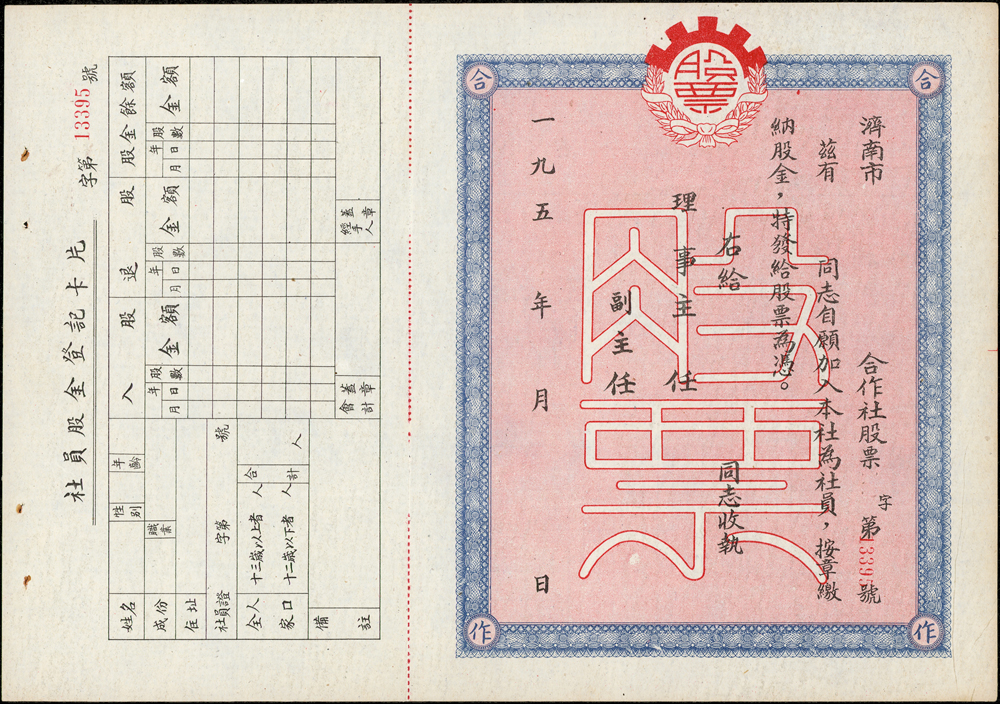 股票
合
合
作
作
濟南市 合作社股票 字第13395號
茲有 同志自願加入本社為社員,按章繳
納股金,特發給股票為憑。
右給 同志收執
理事主任
副主任
一九五 年 月 日
股票
社員股金登記卡片
字第13395號
姓名 性別 年齡
成份 職業
住址
社員證 字第 號
全人 十三歲以上者 人 合
家口 十二歲以下者 人 計 人
備註
入股 退股 股金餘額
年月日 股數 金額 年月日 股數 金額 年月日 股數 金額
會計蓋章 經手人蓋章